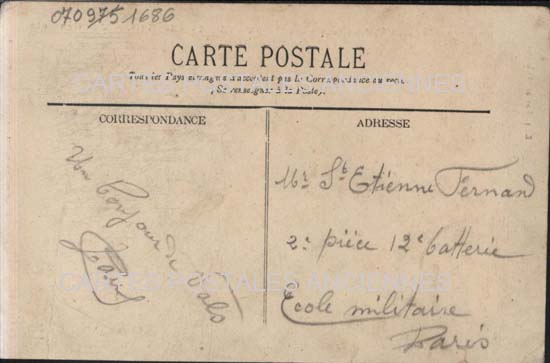 070975 1686
CARTE POSTALE
Tous les Pays étrangers n'acceptent pas la Correspondance au recto
(Se renseigner à la Poste).
CARTES POSTALES ANCIENNES
CORRESPONDANCE
Un Bonjour de Vals
ADRESSE
Mr St Etienne Fernand
2e pièce 12e batterie
Ecole militaire
Paris
CARTES POSTALES ANCIENNES